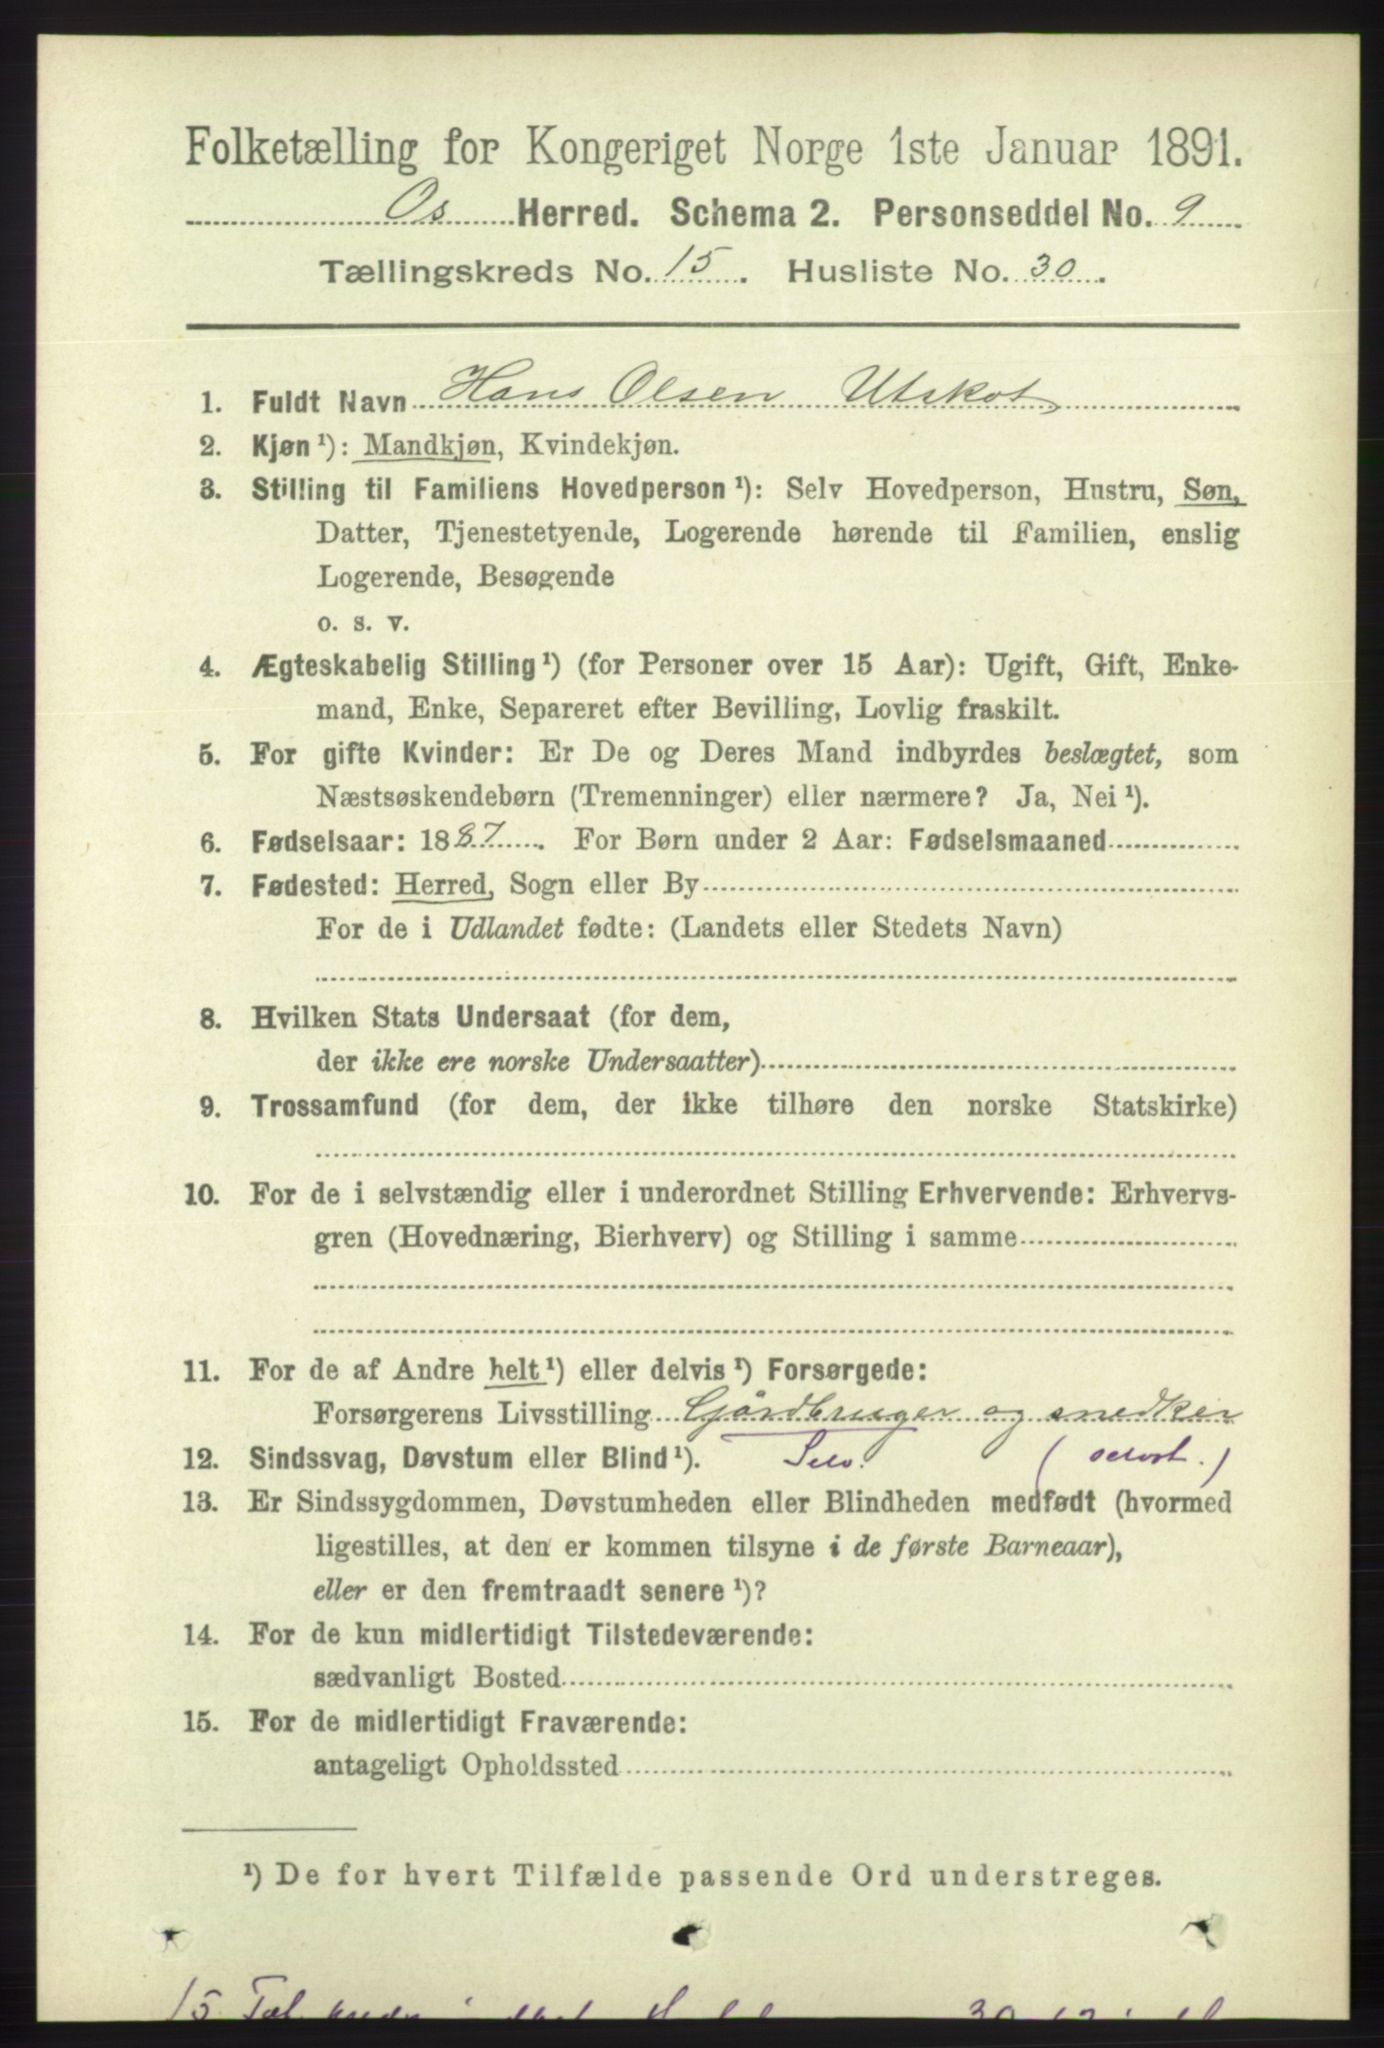 Folketælling for Kongeriget Norge 1ste Januar 1891.
Os Herred. Schema 2. Personseddel No. 9
Tællingskreds No. 15. Husliste No. 30.
1. Fuldt Navn Hans Olsen Utskot
2. Kjøn¹): Mandkjøn, Kvindekjøn.
3. Stilling til Familiens Hovedperson¹): Selv Hovedperson, Hustru, Søn,
Datter, Tjenestetyende, Logerende hørende til Familien, enslig
Logerende, Besøgende
o. s. v.
4. Ægteskabelig Stilling¹) (for Personer over 15 Aar): Ugift, Gift, Enke-
mand, Enke, Separeret efter Bevilling, Lovlig fraskilt.
5. For gifte Kvinder: Er De og Deres Mand indbyrdes beslægtet, som
Næstsøskendebørn (Tremenninger) eller nærmere? Ja, Nei¹).
6. Fødselsaar: 1887. For Børn under 2 Aar: Fødselsmaaned
7. Fødested: Herred, Sogn eller By
For de i Udlandet fødte: (Landets eller Stedets Navn)
8. Hvilken Stats Undersaat (for dem,
der ikke ere norske Undersaatter)
9. Trossamfund (for dem, der ikke tilhøre den norske Statskirke)
10. For de i selvstændig eller i underordnet Stilling Erhvervende: Erhvervs-
gren (Hovednæring, Bierhverv) og Stilling i samme
11. For de af Andre helt¹) eller delvis¹) Forsørgede:
Forsørgerens Livsstilling Gårdbruger og snedker
12. Sindssvag, Døvstum eller Blind¹). Selv. (selvst.)
13. Er Sindssygdommen, Døvstumheden eller Blindheden medfødt (hvormed
ligestilles, at den er kommen tilsyne i de første Barneaar),
eller er den fremtraadt senere¹)?
14. For de kun midlertidigt Tilstedeværende:
sædvanligt Bosted
15. For de midlertidigt Fraværende:
antageligt Opholdssted
¹) De for hvert Tilfælde passende Ord understreges.
15